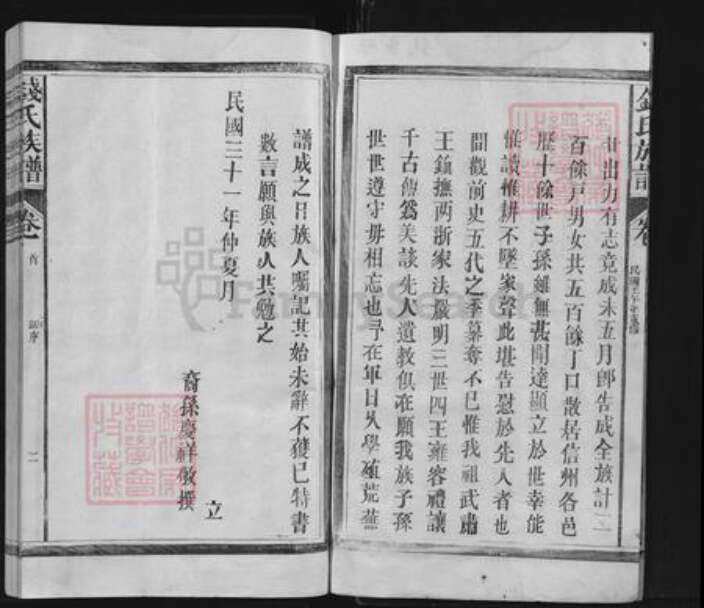 世出力有志竟成未五月即告成全族計二
百餘戶男女共五百餘丁口散居信州各邑
歷十餘世子孫雖無甚聞達顯立於世幸能
惟讀惟耕不墜家聲此堪告慰於先人者也
間觀前史五代之季篡奪不已惟我祖武肅
王鎮撫两浙家法嚴明三世四王雍容禮讓
千古傳為美談先人遺教俱在願我族子孫
世世遵守毋相忘也予在軍日久學殖荒蕪
譜成之日族人囑記其始末辭不獲已特書
數言願與族人共勉之
民國三十一年仲夏月
裔孫慶祥敬撰
立
錢氏族譜
卷
首
譜序
二
FamilySearch